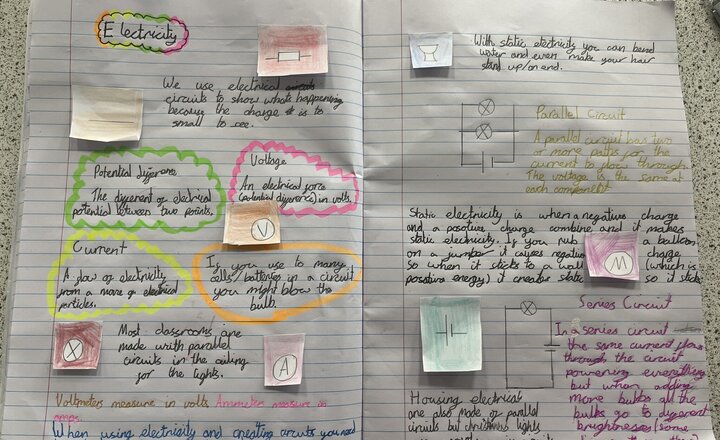 Electricity
We use electrical
circuits to show whats happening
because the charge is to
small to see.
Potential difference
The different of electrical
potential between two points.
Voltage
An electrical force
(potential difference) in volts.
V
Current
A flow of electricity
from a move of electrical
particles.
If you use to many
cells/batteries in a circuit
you might blow the
bulb.
X
Most classrooms are
made with parallel
circuits in the ceiling
for the lights.
A
Voltmeters measure in volts Ammeters measure in
amps.
When using electricity and creating circuits you need
With static electricity you can bend
water and even make your hair
stand up/on end.
Parallel Circuit
A parallel circuit has two
or more paths for the
current to flow through.
The voltage is the same at
each component
Static electricity is when a negative charge
and a positive charge combine and it makes
static electricity. If you rub a balloon
on a jumper it causes negative charge
so when it sticks to a wall (which is
positive energy) it creates static so it sticks
M
Series Circuit
In a series circuit
the same current flows
through the circuit
powering everything
but when adding
more bulbs all the
bulbs go to different
brightnesses (some
Housing electrical
are also made of parallel
circuits but christmas lights